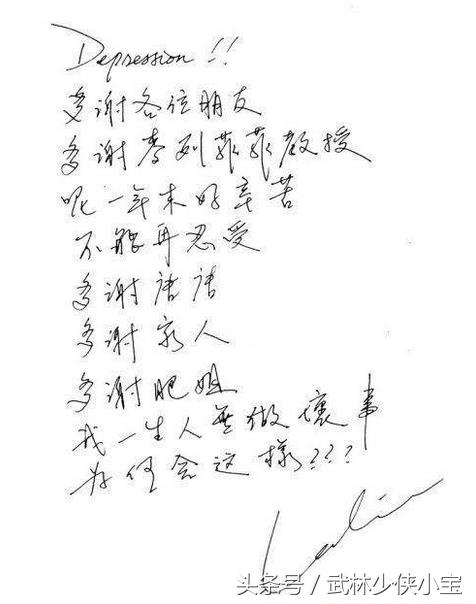 Depression!!
多谢各位朋友
多谢李列菲菲教授
呢一年来好辛苦
不能再忍受
多谢唐唐
多谢家人
多谢肥姐
我一生人無做壞事
为何会这樣???
Leslie
头条号 / 武林少侠小宝